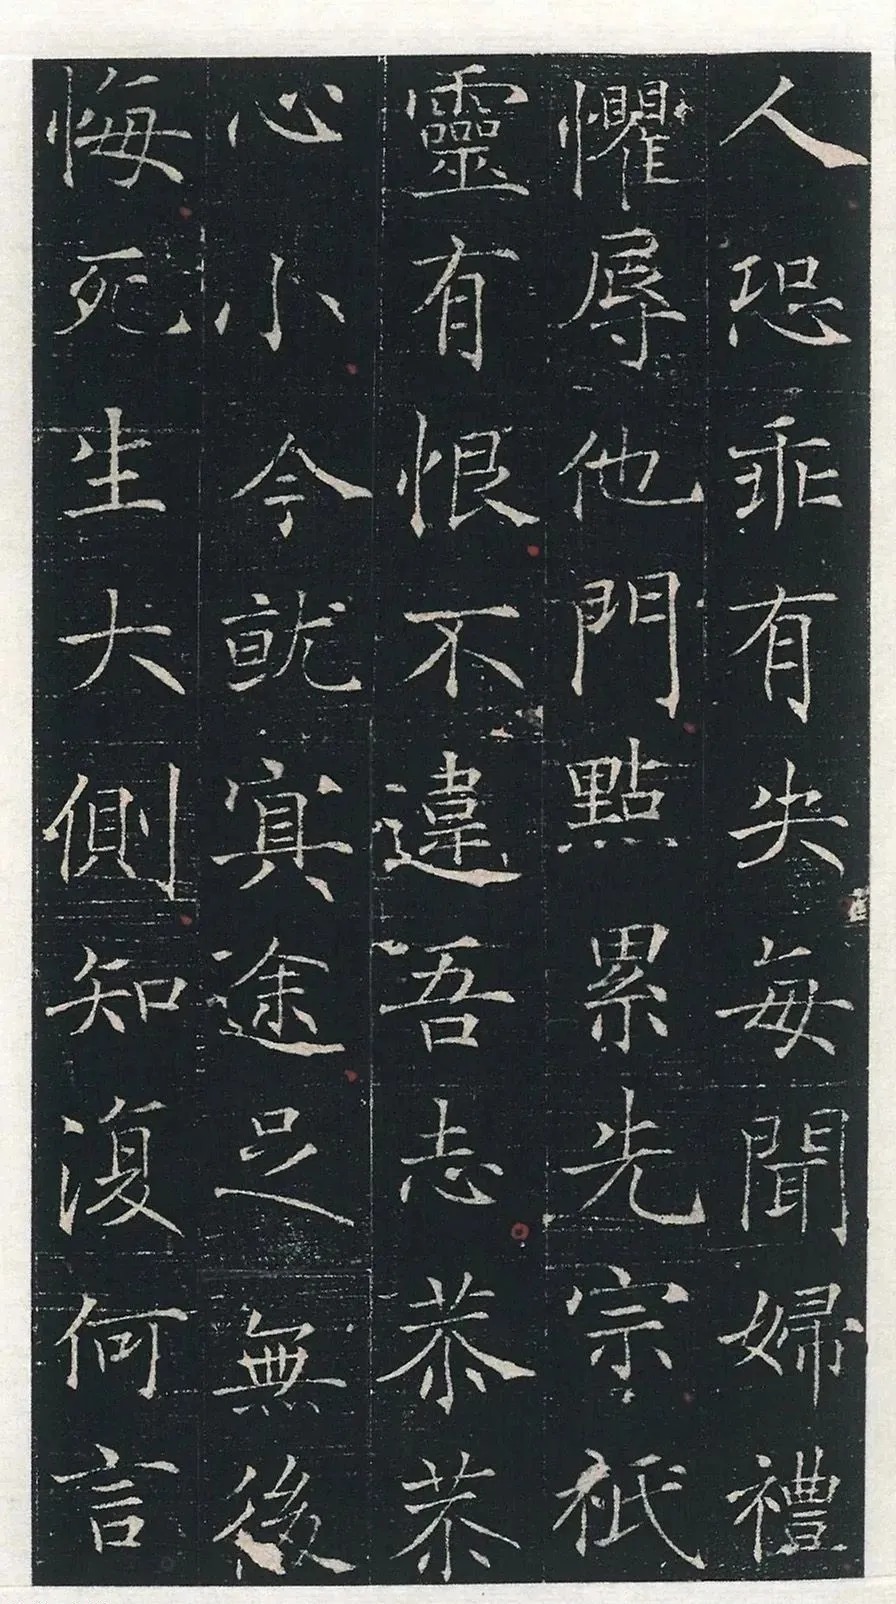 人恐乖有失每聞婦禮
懼辱他門點累先宗祇
靈有恨不違吾志恭恭
心小今就寘途足無後
悔死生大側知復何言